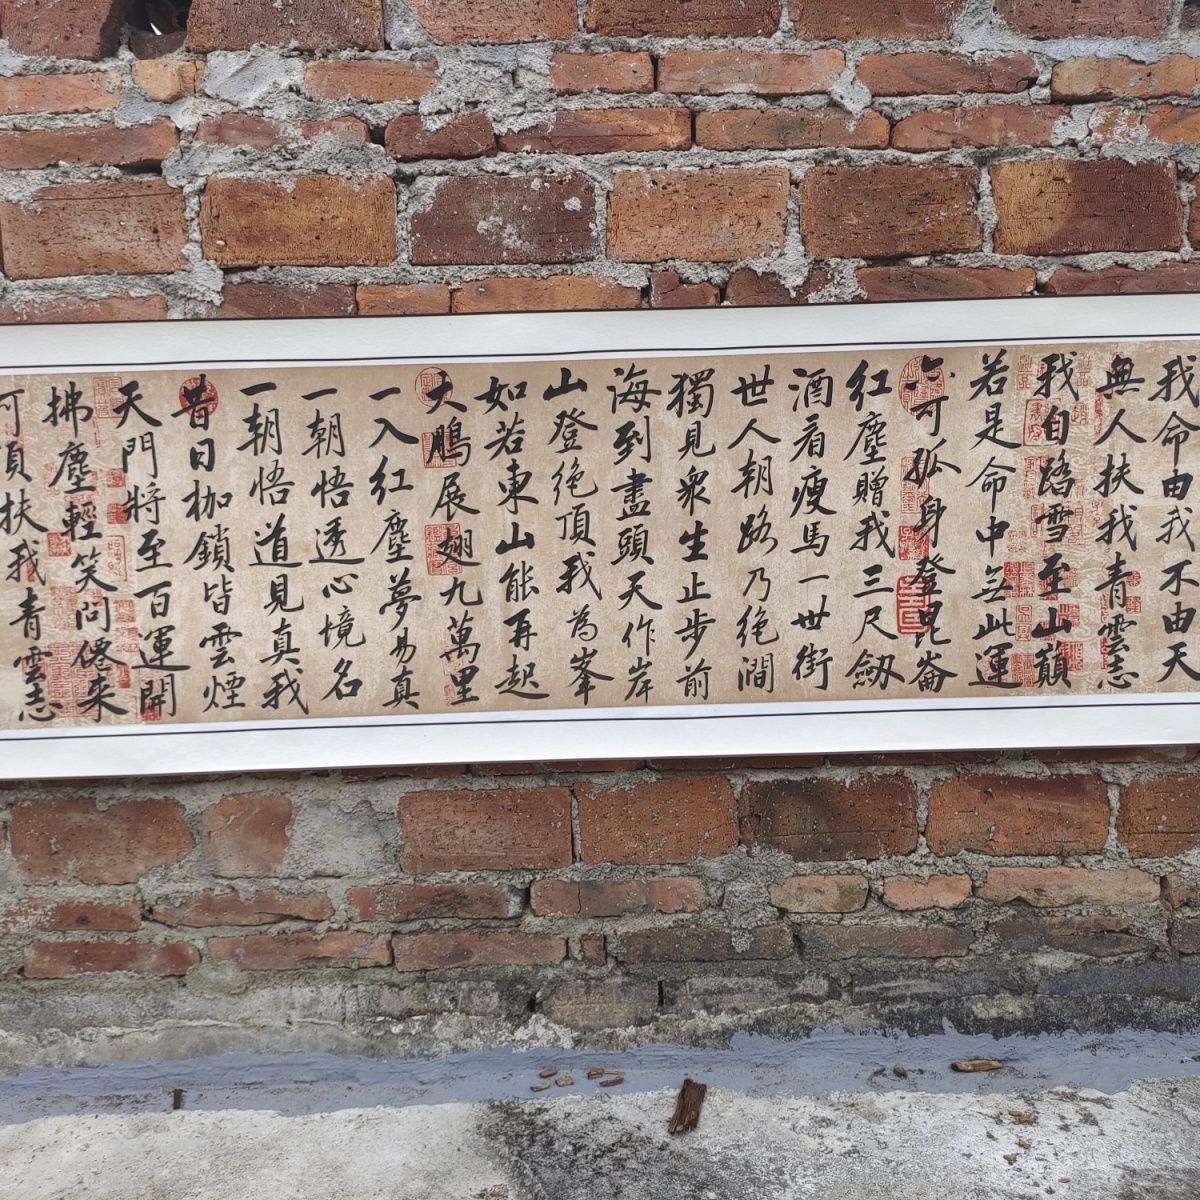 我命由我不由天
無人扶我青雲志
我自踏雪至山巔
若是命中無此運
亦可孤身登昆崙
紅塵贈我三尺劔
酒看瘦馬一世街
世人朝路乃絶澗
獨見衆生止步前
海到盡頭天作岸
山登絶頂我為峯
如若東山能再起
大鵬展翅九萬里
一入紅塵夢易真
一朝悟透心境名
一朝悟道見真我
昔日枷鎖皆雲煙
天門將至百運開
拂塵輕笑問僊来
可須扶我青雲志